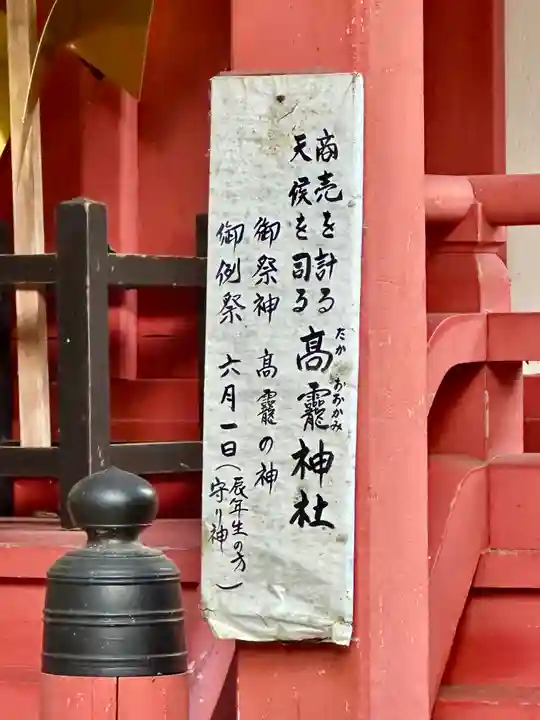 商売を計る
天候を司る
髙龗神社
たかおおかみ
御祭神 髙龗の神
御例祭 六月一日(辰年生の方
守り神)